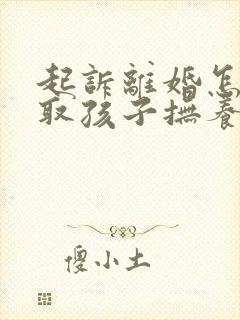 起訴離婚怎
取孩子撫養
傻小土